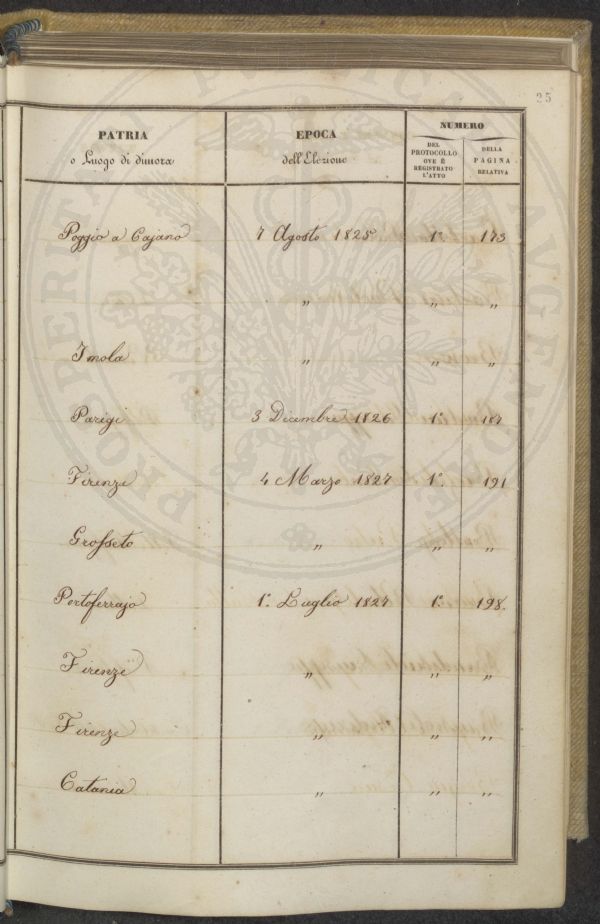 25
PATRIA
o Luogo di dimora
EPOCA
dell'Elezione
NUMERO
DEL
PROTOCOLLO
OVE È
REGISTRATO
L'ATTO
DELLA
PAGINA
RELATIVA
Poggio a Cajano 7 Agosto 1825 1º 173
„ „ „
Imola „ „ „
Parigi 3 Dicembre 1826 1º 187
Firenze 4 Marzo 1827 1º 191
Grosseto „ „ „
Portoferrajo 1º Luglio 1827 1º 198.
Firenze „ „ „
Firenze „ „ „
Catania „ „ „
PROSPERITATI PUBLICAE AUGENDAE